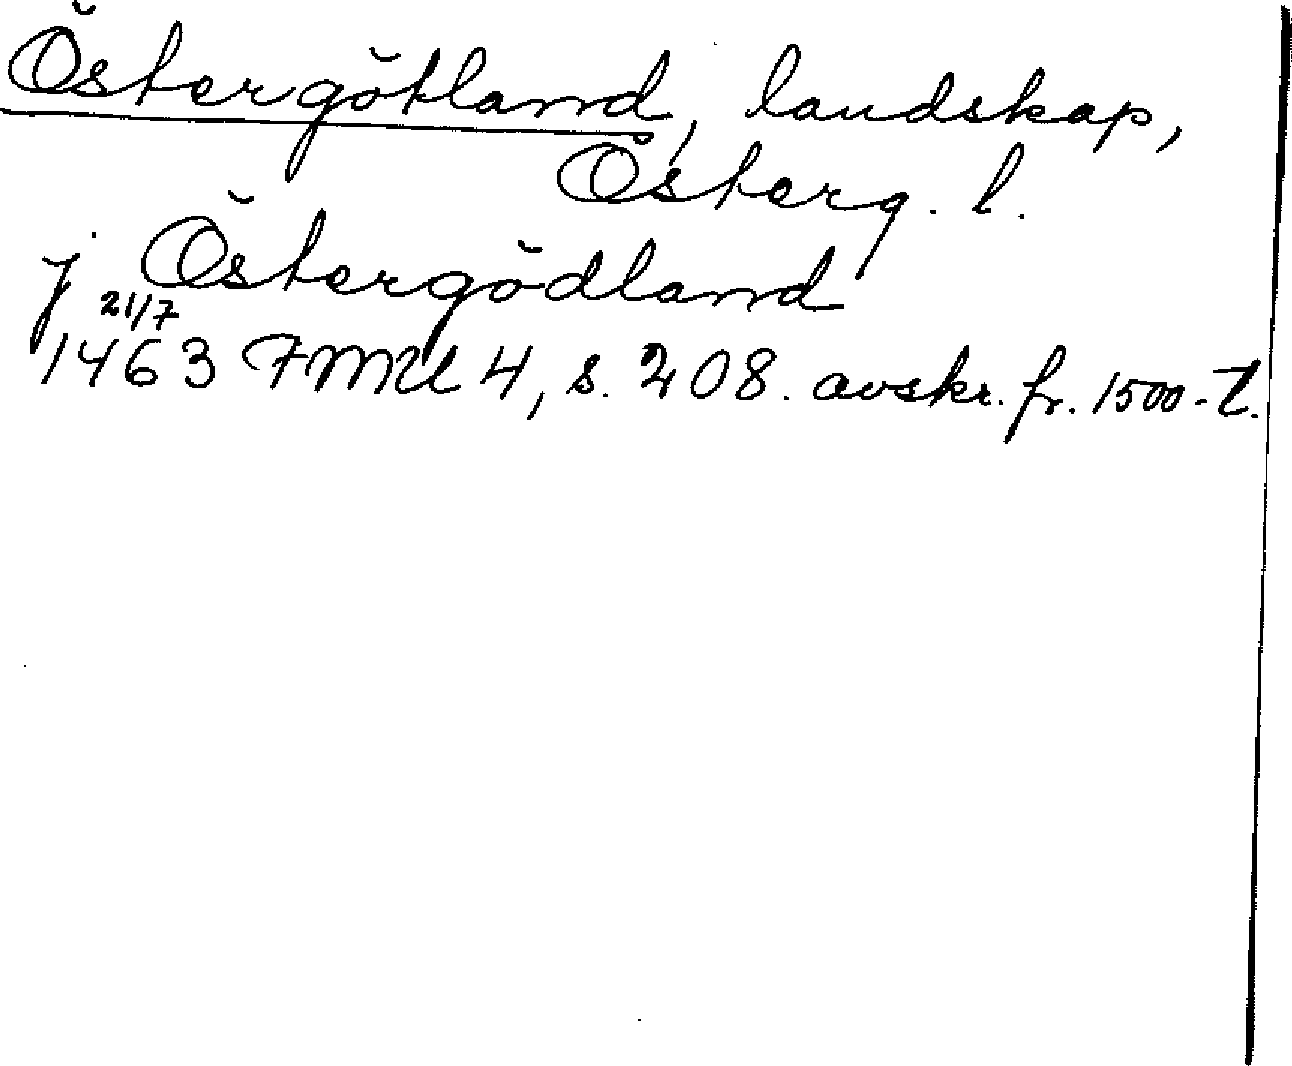 Östergötland, landskap,
Österg. l.
j Östergödland
21/7
1463 FMU 4, s. 208. avskr. fr. 1500-t.